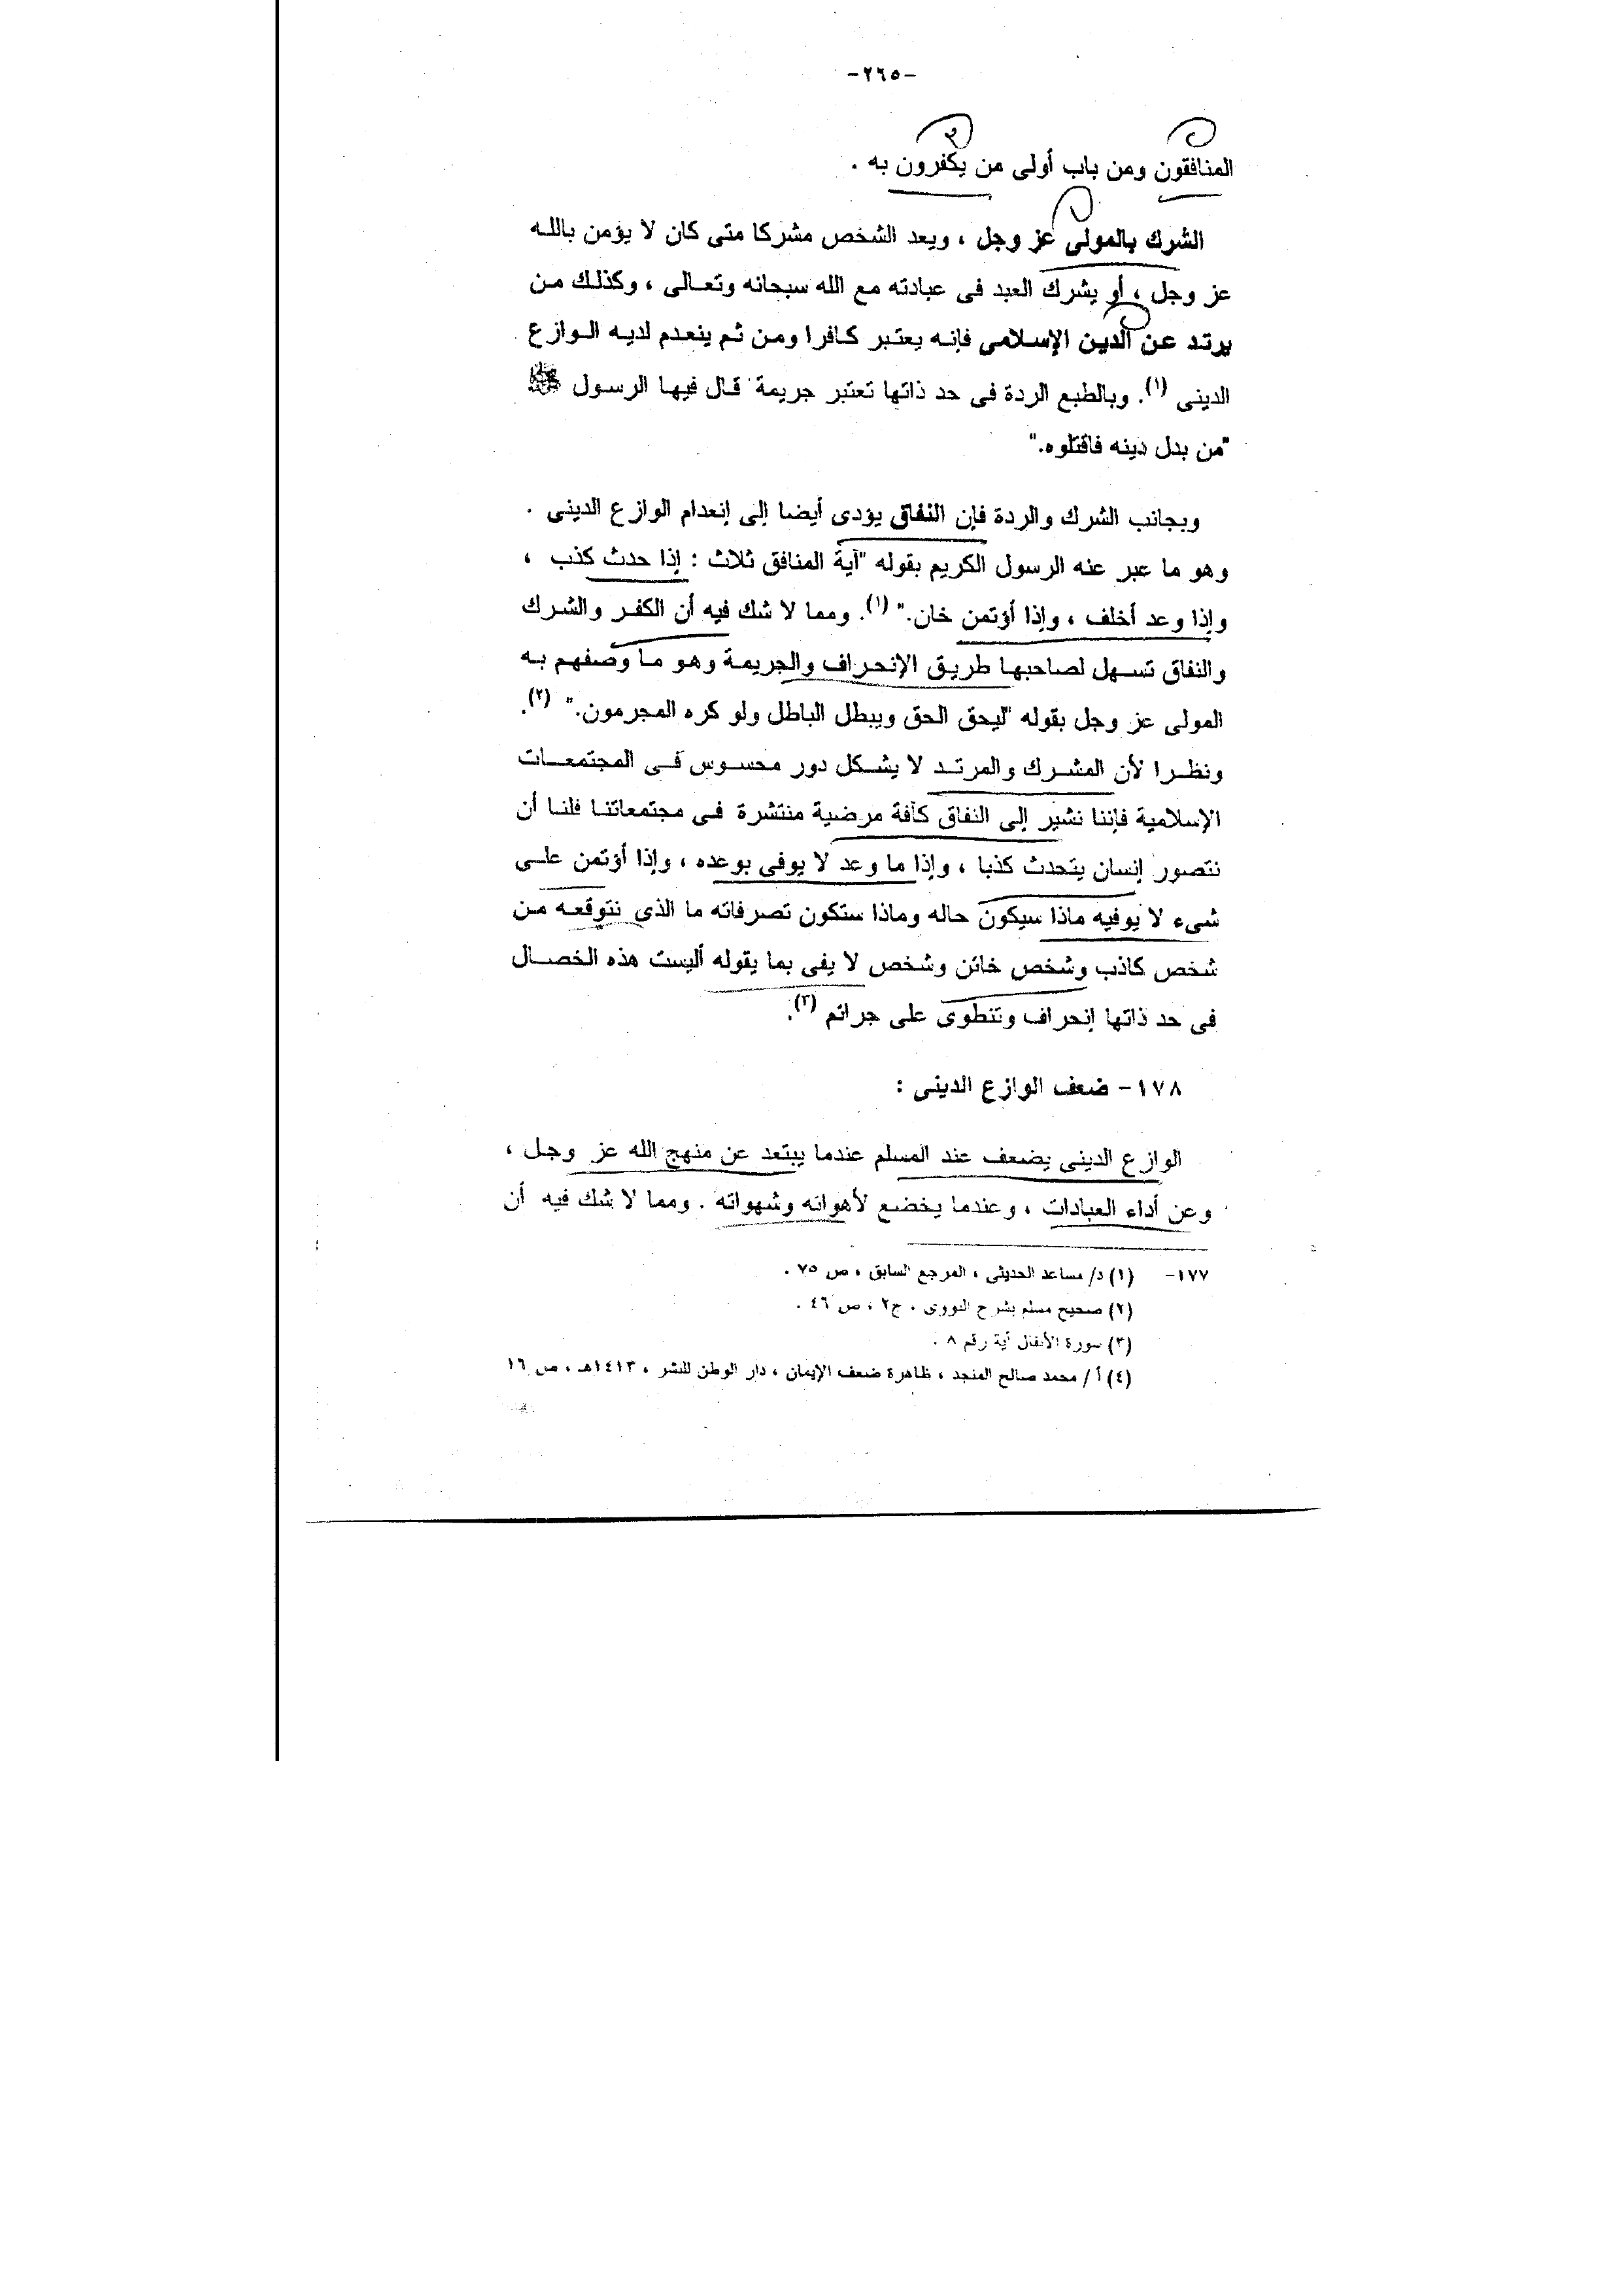 -٢٦٥-
المنافقون ومن باب أولى من يكفرون به .
الشرك بالمولى عز وجل ، ويعد الشخص مشركا متى كان لا يؤمن بالله
عز وجل ، أو يشرك العبد فى عبادته مع الله سبحانه وتعالى ، وكذلك من
يرتد عن الدين الإسلامى فإنه يعتبر كافرا ومن ثم ينعدم لديه الوازع
الدينى (١). وبالطبع الردة فى حد ذاتها تعتبر جريمة قال فيها الرسول ﷺ
"من بدل دينه فاقتلوه."
وبجانب الشرك والردة فإن النفاق يؤدى أيضا إلى إنعدام الوازع الدينى .
وهو ما عبر عنه الرسول الكريم بقوله "آية المنافق ثلاث : إذا حدث كذب ،
وإذا وعد أخلف ، وإذا أؤتمن خان." (١). ومما لا شك فيه أن الكفر والشرك
والنفاق تسهل لصاحبها طريق الإنحراف والجريمة وهو ما وصفهم به
المولى عز وجل بقوله "ليحق الحق ويبطل الباطل ولو كره المجرمون." (٢).
ونظرا لأن المشرك والمرتد لا يشكل دور محسوس فى المجتمعات
الإسلامية فإننا نشير إلى النفاق كآفة مرضية منتشرة فى مجتمعاتنا فلنا أن
نتصور إنسان يتحدث كذبا ، وإذا ما وعد لا يوفى بوعده ، وإذا أؤتمن على
شىء لا يوفيه ماذا سيكون حاله وماذا ستكون تصرفاته ما الذى نتوقعه من
شخص كاذب وشخص خائن وشخص لا يفى بما يقوله أليست هذه الخصال
فى حد ذاتها إنحراف وتنطوى على جرائم (٣).
١٧٨- ضعف الوازع الدينى :
الوازع الدينى يضعف عند المسلم عندما يبتعد عن منهج الله عز وجل ،
وعن أداء العبادات ، وعندما يخضع لأهوائه وشهواته . ومما لا شك فيه أن
١٧٧- (١) د/ مساعد الحديثى ، المرجع السابق ، ص ٧٥ .
(٢) صحيح مسلم بشرح النووى ، ج٢ ، ص ٤٦ .
(٣) سورة الأنفال آية رقم ٨ .
(٤) أ / محمد صالح المنجد ، ظاهرة ضعف الإيمان ، دار الوطن للنشر ، ١٤١٣هـ ، ص ١٦